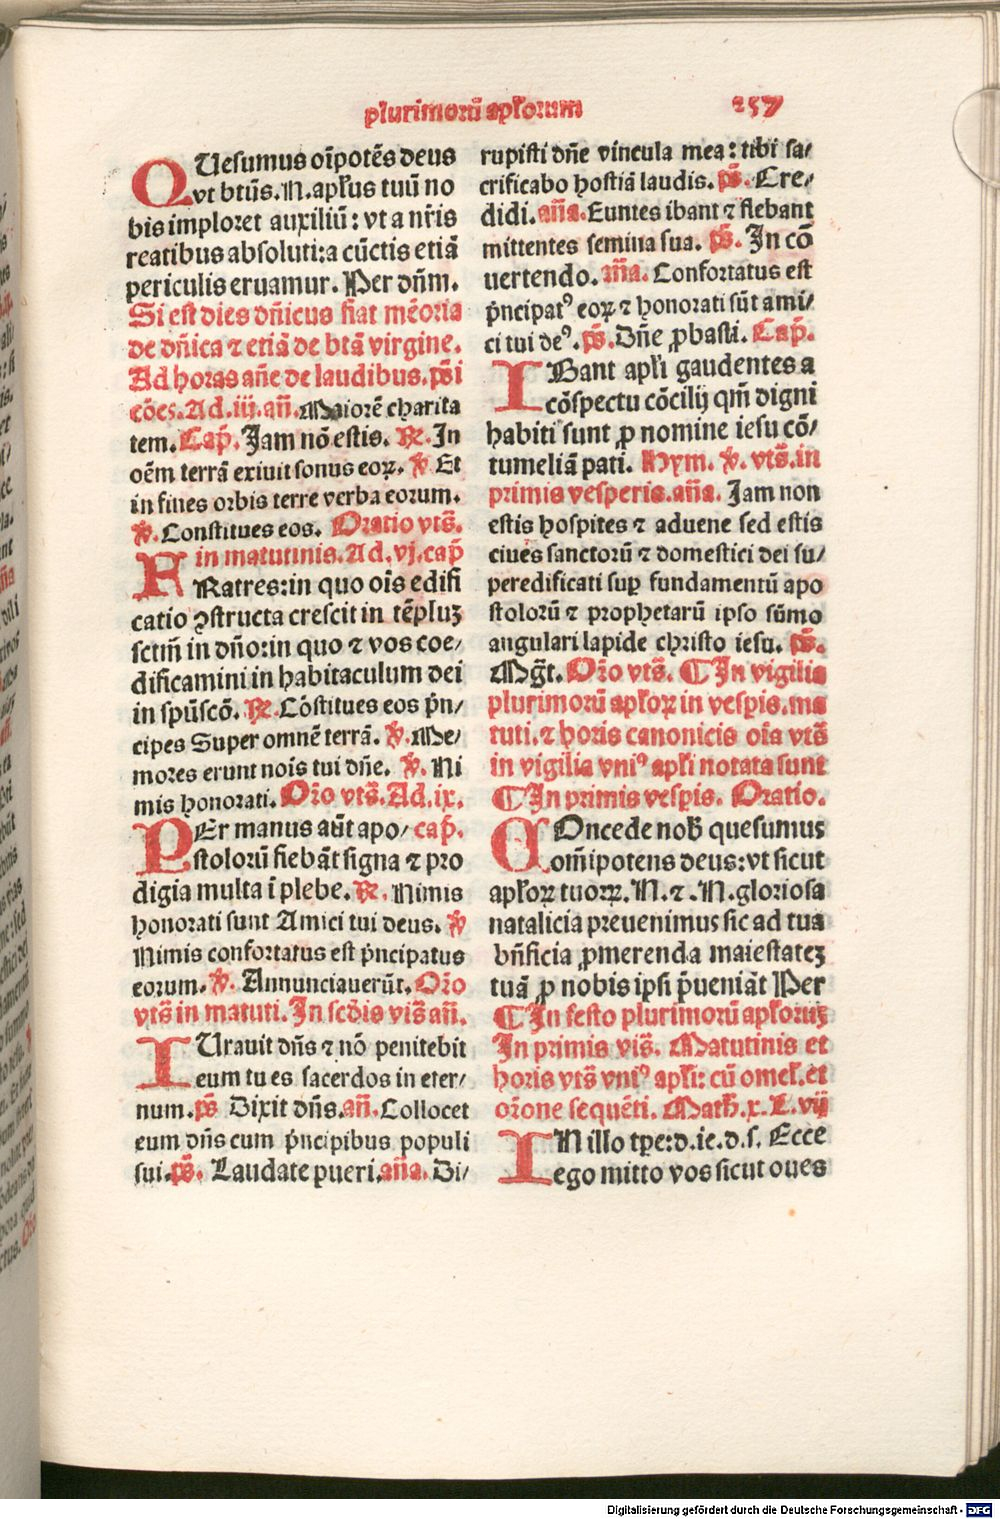 plurimorū apl'orum 257
QUesumus oīpotēs deus
vt btūs. N. apl'us tuū no
bis imploret auxiliū: vt a nr̄is
reatibus absoluti: a cūctis etiā
periculis eruamur. Per dn̄m.
Si est dies dn̄icus fiat mēoria
de dn̄ica ⁊ etiā de btā virgine.
Ad horas añe de laudibus. ps̄i
cōes. Ad. iij. an̄. Maiorē charita
tem. Cap̄. Jam nō estis. ℟. In
oēm terrā exiuit sonus eoꝝ. ℣ Et
in fines orbis terre verba eorum.
℣. Constitues eos. Oratio vts̄.
in matutinis. Ad. vj. cap̄
FRatres: in quo oīs edifi
catio ꝯstructa crescit in tēpluꝫ
sctm̄ in dn̄o: in quo ⁊ vos coe/
dificamini in habitaculum dei
in spūscō. ℟. Cōstitues eos p̄n/
cipes Super omnē terrā. ℣. Me/
mores erunt nois tui dn̄e. ℣. Ni
mis honorati. Or̄o vts̄. Ad. ix.
PEr manus aūt apo/ cap̄.
stolorū fiebāt signa ⁊ pro
digia multa ī plebe. ℟. Nimis
honorati sunt Amici tui deus. ℣
Nimis confortatus est p̄ncipatus
eorum. ℣. Annunciauerūt. Or̄o
vts̄ in matuti. In scd̄is vis̄ an̄.
IUrauit dn̄s ⁊ nō penitebit
eum tu es sacerdos in eter/
num. ps̄ Dixit dn̄s. an̄. Collocet
eum dn̄s cum p̄ncipibus populi
sui. ps̄. Laudate pueri. añа. Di/
rupisti dn̄e vincula mea: tibi sa/
crificabo hostiā laudis. ps̄. Cre/
didi. añа. Euntes ibant ⁊ flebant
mittentes semina sua. ps̄. In cō
uertendo. añа. Confortatus est
p̄ncipatꝰ eoꝝ ⁊ honorati sūt ami/
ci tui deꝰ. ps̄. Dn̄e ꝓbasti. Cap̄.
IBant apl'i gaudentes a
cōspectu cōcilij qm̄ digni
habiti sunt ꝓ nomine iesu cō/
tumeliā pati. Hym. ℣. vts̄. in
primis vesperis. añа. Jam non
estis hospites ⁊ aduene sed estis
ciues sanctorū ⁊ domestici dei su/
peredificati suꝑ fundamentū apo
stolorū ⁊ prophetarū ipso sūmo
angulari lapide christo iesu. ps̄.
Mg̅t. Or̄o vts̄. ¶ In vigilia
plurimorū apl'oꝝ in vesꝑis. ma
tuti. ⁊ horis canonicis oīa vts̄
in vigilia vniꝰ apl'i notata sunt
¶ In primis vesꝑis. Oratio.
COncede nob̄ quesumus
om̄ipotens deus: vt sicut
apl'oꝝ tuoꝝꝝ. N. ⁊. N. gloriosa
natalicia preuenimus sic ad tua
bn̄ficia ꝓmerenda maiestateꝫ
tuā ꝓ nobis ipsi p̄ueniāt Per
¶ In festo plurimorū apl'oruꝫ
In primis vis̄. Matutinis et
horis vts̄ vniꝰ apl'i: cū omel'. et
or̄one sequēti. Math̄. x. L. vij
IN illo tpe: d. ie. d. s. Ecce
ego mitto vos sicut oues
Digitalisierung gefördert durch die Deutsche Forschungsgemeinschaft - DFG